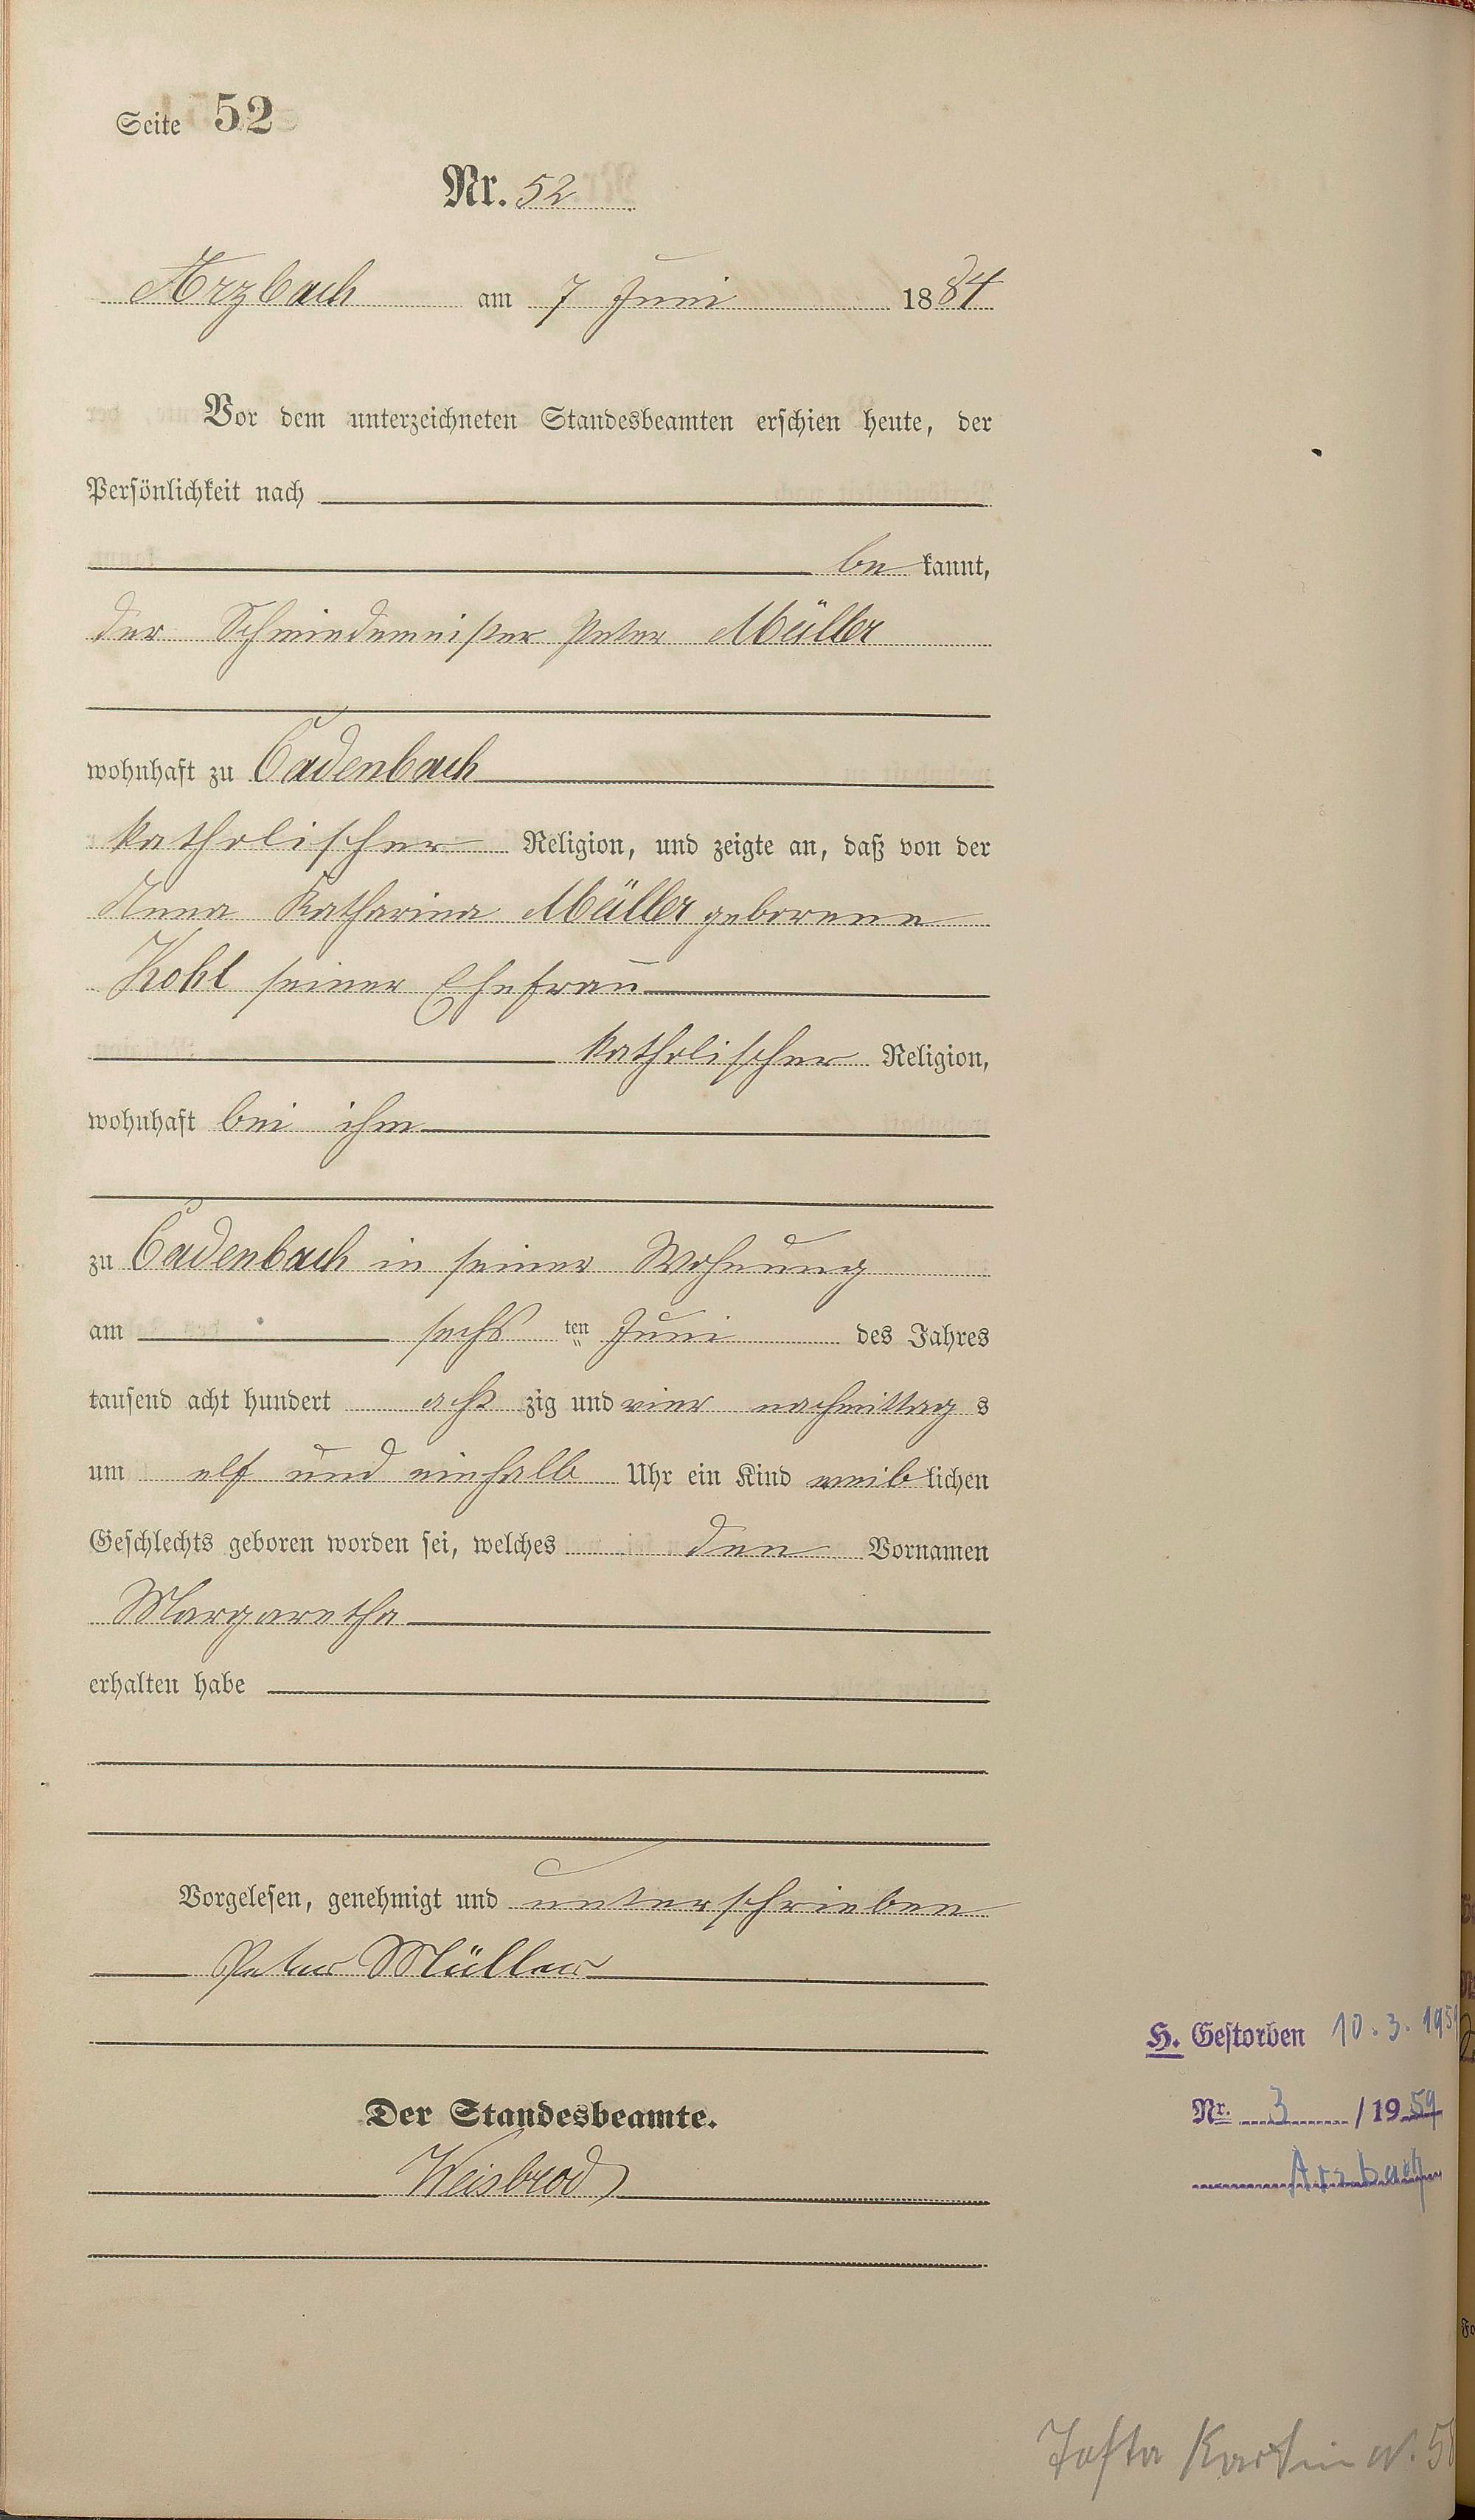 Seite 52
Nr. 52
Arzbach am 7 Juni 1884
Vor dem unterzeichneten Standesbeamten erschien heute, der
Persönlichkeit nach
be kannt,
der Schmiedemeister Peter Müller
wohnhaft zu Cadenbach
katholischer Religion, und zeigte an, daß von der
Anna Katharina Müller geborene
Kohl seiner Ehefrau
katholischer Religion,
wohnhaft bei ihm
zu Cadenbach in seiner Wohnung
am sechs ten Juni des Jahres
tausend acht hundert acht zig und vier nachmittag s
um elf und einhalb Uhr ein Kind weib lichen
Geschlechts geboren worden sei, welches den Vornamen
Margaretha
erhalten habe
Vorgelesen, genehmigt und unterschrieben
Peter Müller
Der Standesbeamte.
Weisbrod
H. Gestorben 10.3.195
Nr. 3 /1959
Arzbach